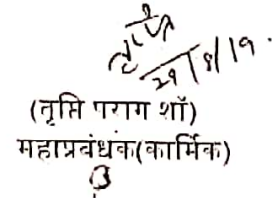 29/8/19.
(तृप्ति पराग शॉ)
महाप्रबंधक(कार्मिक)